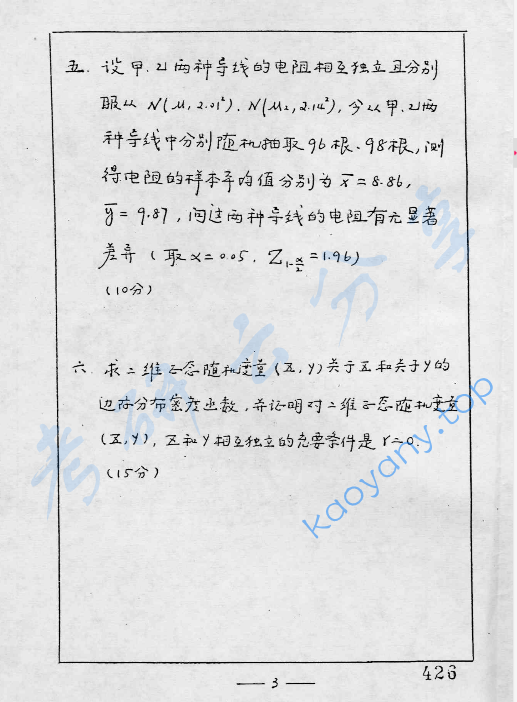 五. 设甲.乙两种导线的电阻相互独立且分别
服从 N(μ₁, 2.01²). N(μ₂, 2.14²), 今从甲.乙两
种导线中分别随机抽取96根、98根, 测
得电阻的样本平均值分别为 x̄=8.86,
ȳ=9.87, 问这两种导线的电阻有无显著
差异 (取α=0.05. Z₁₋α/₂=1.96)
(10分)
六. 求二维正态随机变量(X,Y)关于X和关于Y的
边缘分布密度函数, 并证明对二维正态随机变量
(X,Y), X和Y相互独立的充要条件是 r=0.
(15分)
考研云分享
kaoyany.top
426
— 3 —